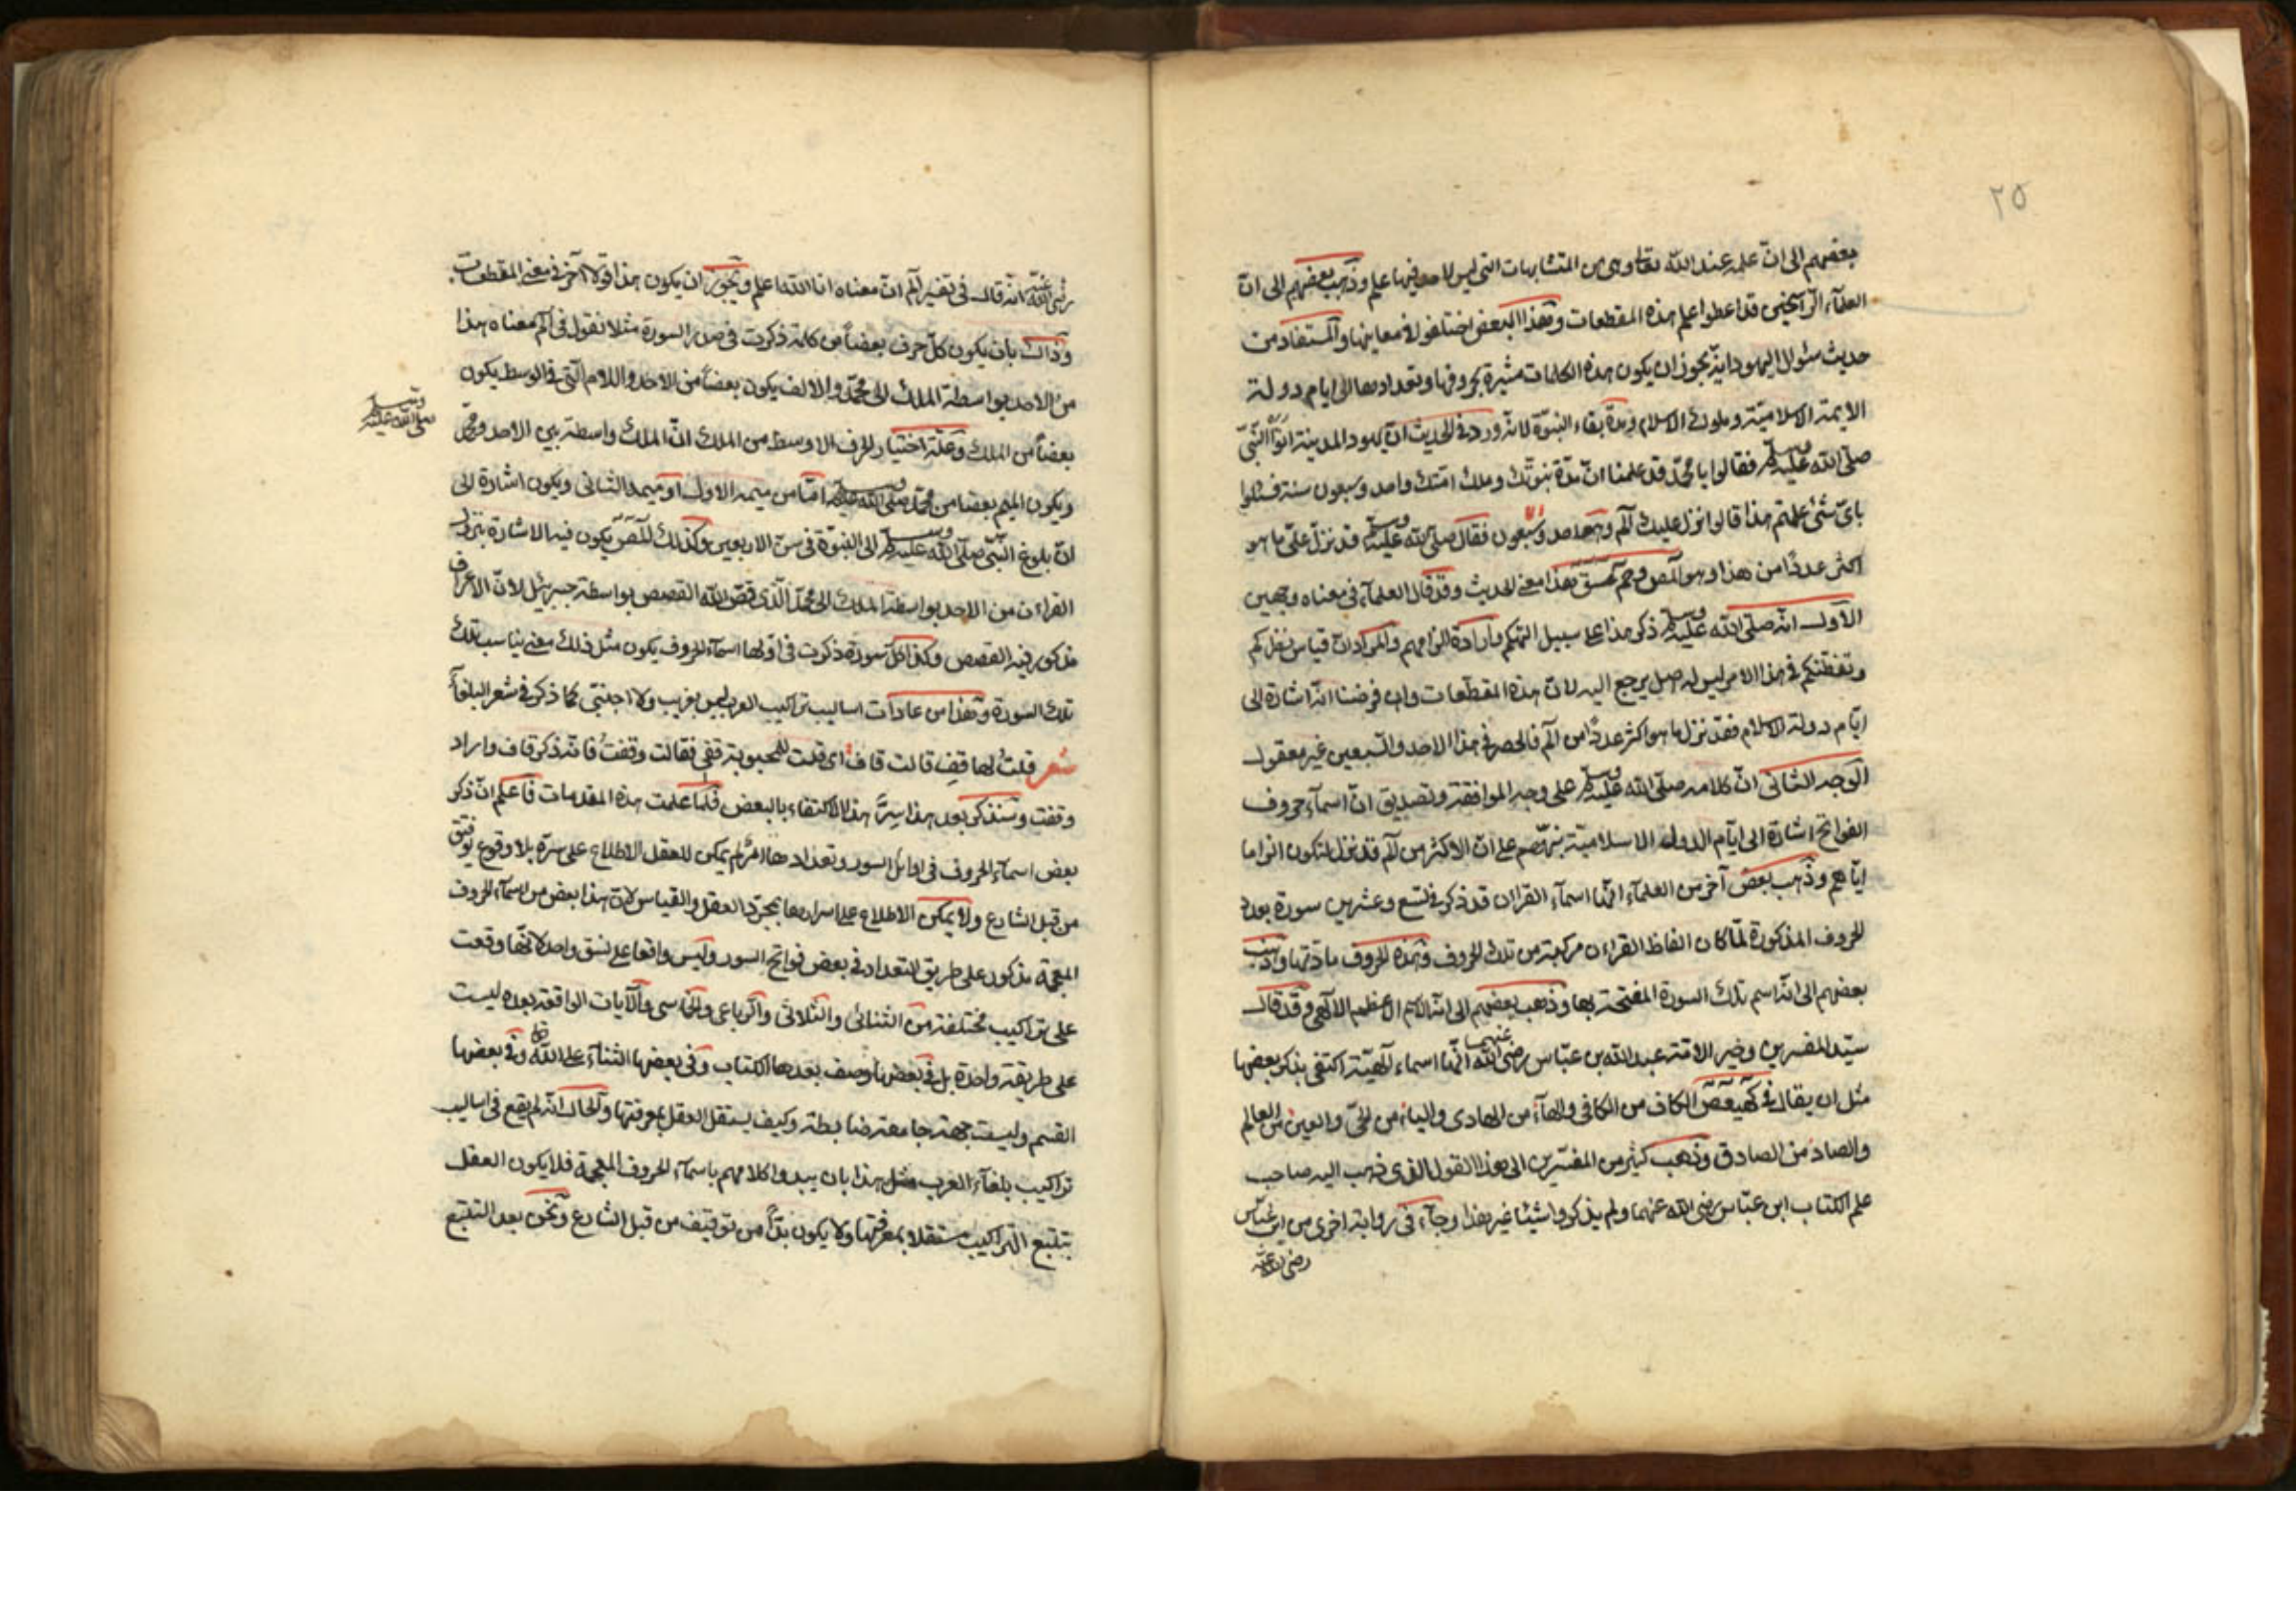 ٢٥
بعضهم الى انّ علمه عند الله تعا وهى من المتشابهات التى ليس لاحد فيها علم وذهب بعضهم الى انّ
العلمآء الرّاسخين قد اعطوا علم هذه المقطعات ولهذا البعض اختلفوا فى معاينها والمستفاد من
حديث سئوال اليهود اينّه يجوز ان يكون هذه الكلمات مشيرة بحروفها وتعدادها الى ايام دولة
الايمة الاسلاميّة وملوك الاسلام ومدّة بقاء النبوّة لانه ورد فى الحديث انّ يهود المدينة اتوا النّبىّ
صلّى الله عليه وسلم فقالوا يا محمّد قد علمنا انّ مدّة نبوّتك وملك امّتك واحد وسبعون سنة فسئلوا
باىّ شئ علمتم هذا قالوا نزل عليك آلم وهو احد وسبعون فقال صلى الله عليه وسلم قد نزل علىّ ما هو
اكثر عددًا من هذا وهو المص وحم عسق هذا معنى الحديث وقد قال العلمآء فى معناه وجهين
الاول انه صلّى الله عليه وسلم ذكر هذا على سبيل التهكم وارادة الزامهم والمراد انّ قياس نظركم
وتفطنكم فى هذا الامر ليس له اصل يرجع اليه لانّ هذه المقطّعات وان فرضنا انّه اشارة الى
ايّام دولة الاسلام فقد نزل ما هو اكثر عددًا من آلم فالحصر فى هذا الاحد والسّبعين غير معقول
الوجه الثانى انّ كلامه صلّى الله عليه وسلم على وجه الموافقة وتصديق انّ اسمآء حروف
الفواتح اشارة الى ايّام الدوله الاسلاميّة بنزعمهم على انّ الاكثر من آلم قد نزل لتكون الزاما
ايّاهم وذهب بعض آخر من العلمآء انّها اسمآء القران قد ذكر فى تسع وعشرين سورة بعدد
الحروف المذكورة لمّا كان الفاظ القران مركبة من تلك الحروف وهذه الحروف مادّتها وذهب
بعضهم الى انّه اسم تلك السورة المفتحة بها وذهب بعضهم الى انّه الاسم الاعظم الالهى وقد قال
سيّد المفسرين وخير الامّة عبد الله بن عبّاس رضى الله عنهما انّها اسماء آلهيّة اكتفى بذكر بعضها
مثل ان يقال فى كهيعص الكاف من الكافى والهآء من الهادى والياء من الحىّ والعين من العالم
والصاد من الصادق وذهب كثير من المفسّرين الى هذا القول الذى ذهب اليه صاحب
علم الكتاب ابن عبّاس رضى الله عنهما ولم يذكروا شيئا غير هذا وجآء فى رواية اخرى من ابن عبّاس
رضى الله عنه
رضى الله عنه انّه قال فى تفسير آلم انّ معناه انا الله اعلم ويجوز ان يكون هذا قولا آخر فى معنى المقطعات
وذلك بان يكون كلّ حرف بعضًا من كلمة ذكرت فى صدر السورة مثلا نقول فى آلم معناه هذا
من الاحد بواسطة الملك الى محمّد والالف يكون بعضًا من الاحد واللام الّتى فى الوسط يكون
صلى الله عليه وسلم
بعضًا من الملك وعلّة اختيار الحرف الاوسط من الملك انّ الملك واسطة بين الاحد ومحمّد
ويكون الميم بعضا من محمّد صلى الله عليه وسلم امّا من ميمه الاول او ميمه الثانى ويكون اشارة الى
انّ بلوغ النّبى صلّى الله عليه وسلم الى النبوّة فى سنّ الاربعين وكذلك المص يكون فيه الاشارة بنزول
القران من الاحد بواسطة الملك الى محمّد الّذى قصّ الله القصص بواسطة جبرئيل لانّ الاعراف
مذكور فيه القصص وكذا كل سورة ذكرت فى اوّلها اسمآء الحروف يكون مثل ذلك معنى يناسب تلك
تلك السورة وهذا من عادات اساليب تراكيب العرب ليس بغريب ولا اجنبى كما ذكر فى شعر البلغآء
شعر قلتُ لها قف قالت قاف اى قلت للمحبوبة قفى فقالت وقفتُ فانه ذكر قاف واراد
وقفت وسنذكر بعد هذا سرّ هذا الاكتفاء بالبعض فلمّا علمت هذه المقدمات فاعلم انّ ذكر
بعض اسمآء الحروف فى اوائل السور وتعدادها امر لم يمكن للعقل الاطلاع على سرّه بلا وقوع توقيف
من قبل الشارع ولا يمكن الاطلاع على اسرارها بمجرّد العقل والقياس لانّ هذا بعض من اسمآء الحروف
المعجمة مذكور على طريق التعداد فى بعض فواتح السور وليس واقعا على نسق واحد لانّها وقعت
على تراكيب مختلفة من الثنائى والثلاثى والرباعى والخماسى والآيات الواقعة بعده ليست
على طريقة واحدة بل فى بعضها وصف بعدها الكتاب وفى بعضها الثنآء على الله تعا وفى بعضها
القسم وليست جهة جامعة ضابطة وكيف يستقل العقل بمعرفتها والحال انّه لم يقع فى اساليب
تراكيب بلغآء العرب مثل هذا بان يبدوا كلامهم باسمآء الحروف المعجمة فلا يكون العقل
بتتبع التراكيب مستقلا بمعرفتها ولا يكون بدًّا من توقيف من قبل الشارع ونحن بعد التتبع